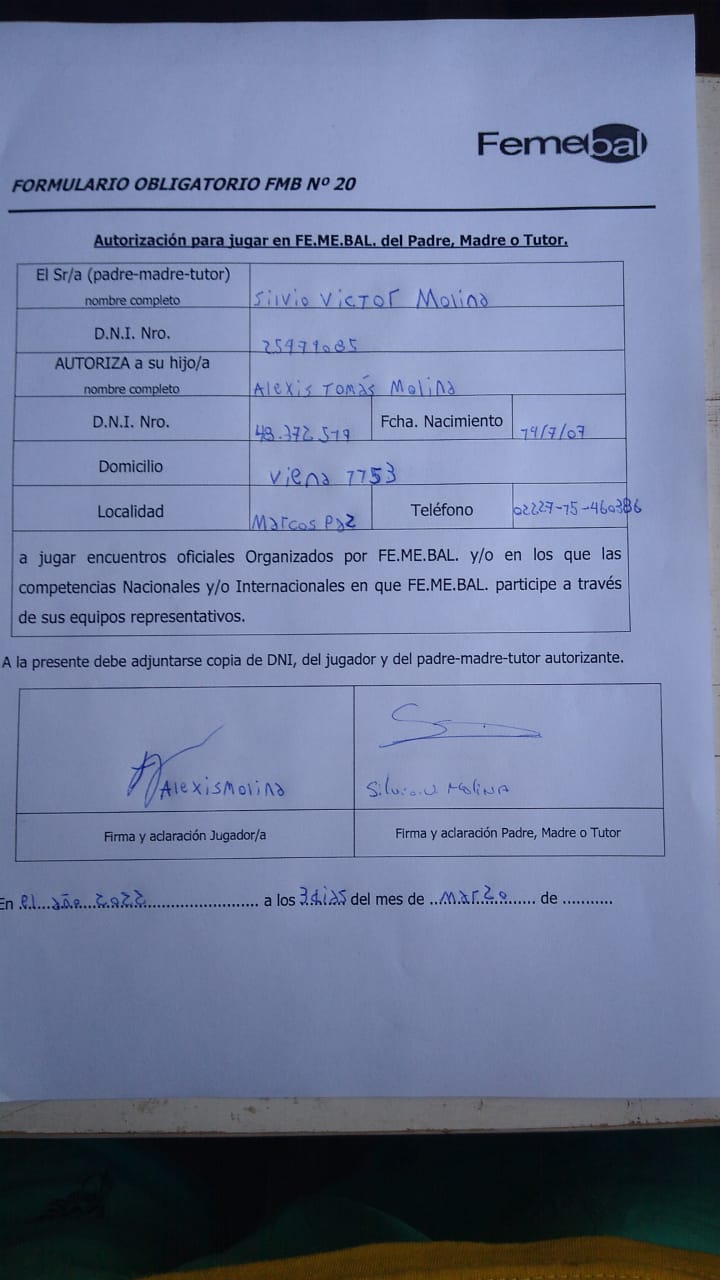 Femebal
FORMULARIO OBLIGATORIO FMB Nº 20
Autorización para jugar en FE.ME.BAL. del Padre, Madre o Tutor.
El Sr/a (padre-madre-tutor)
nombre completo
Silvio Victor Molina
D.N.I. Nro.
AUTORIZA a su hijo/a
nombre completo
Alexis Tomás Molina
D.N.I. Nro.
Fcha. Nacimiento
Domicilio
Viena 1153
Localidad
Marcos Paz
Teléfono
a jugar encuentros oficiales Organizados por FE.ME.BAL. y/o en los que las
competencias Nacionales y/o Internacionales en que FE.ME.BAL. participe a través
de sus equipos representativos.
A la presente debe adjuntarse copia de DNI, del jugador y del padre-madre-tutor autorizante.
Alexis Molina
Silvio.V Molina
Firma y aclaración Jugador/a
Firma y aclaración Padre, Madre o Tutor
En el año 2022 a los 3 dias del mes de Marzo de ...........